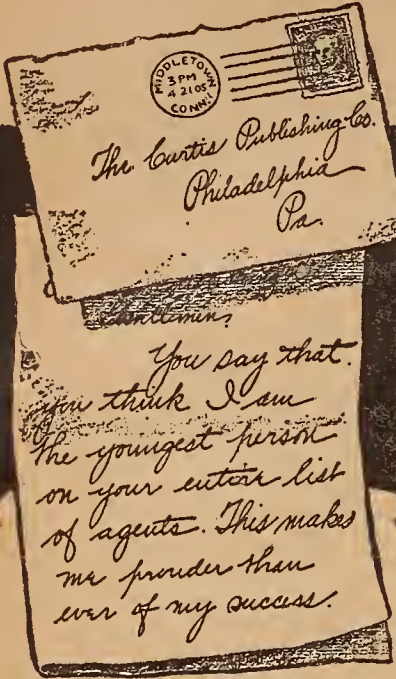 MIDDLETOWN
3 PM
4 21 05
CONN.
The Curtis Publishing Co.
Philadelphia
Pa.
Gentlemen:
You say that
you think I am
the youngest person
on your entire list
of agents. This makes
me prouder than
ever of my success.